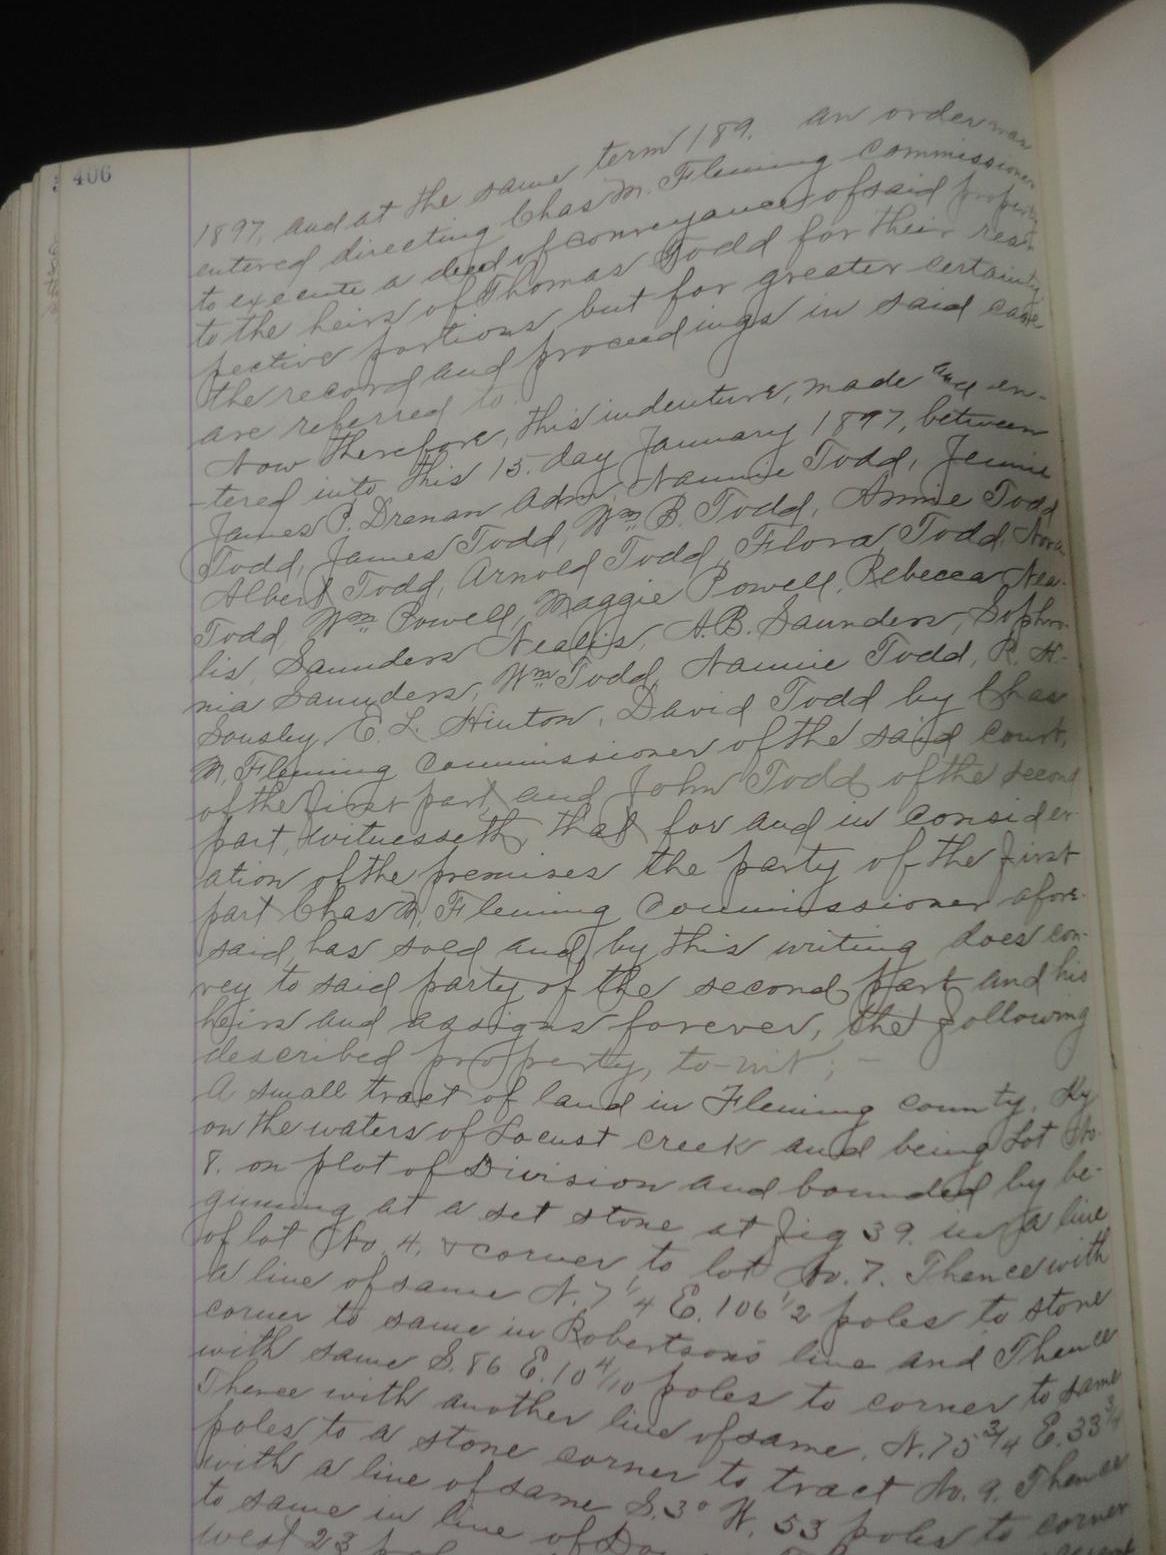 406
1897, and at the same term 189. an order was
entered directing Chas M. Fleming commissioner
to execute a deed of conveyance of said property
to the heirs of Thomas Todd for their res-
pective portions but for greater certainty
the record and proceedings in said case
are referred to.
Now therefore, this indenture, made and en-
-tered into this 15. day January 1897, between
James P. Drenan Adm, Nannie Todd, Jennie
Todd, James Todd, Wm B. Todd, Annie Todd
Albert Todd, Arnold Todd, Flora Todd, Nora
Todd Wm Powell, Maggie Powell, Rebecca Nea-
lis, Saunders Nealis, A.B. Saunders, Sophro-
nia Saunders, Wm Todd, Nannie Todd, R. H.
Sousley, E. L. Hinton, David Todd by Chas
M. Fleming Commissioner of the said court,
of the first part, and John Todd of the second
part, witnesseth, that for and in consider-
ation of the premises the party of the first
part Chas M. Fleming Commissioner afore-
said, has sold and by this writing does con-
vey to said party of the second part and his
heirs and assigns forever, the following
described property, to-wit; -
A small tract of land in Fleming county, Ky
on the waters of Locust creek and being Lot No.
8. on plot of Division and bounded by be-
ginning at a set stone at fig 39. in a line
of lot No. 4. & corner to lot No. 7. Thence with
a line of same N. 7 1/4 E. 106 1/2 poles to stone
corner to same in Robertson's line and Thence
with same S. 86 E. 10 4/10 poles to corner to same
Thence with another line of same, N. 75 3/4 E. 33 3/4
poles to a stone corner to tract No. 9. Thence
with a line of same S. 3° W. 53 poles to corner
to same in line of
west 23